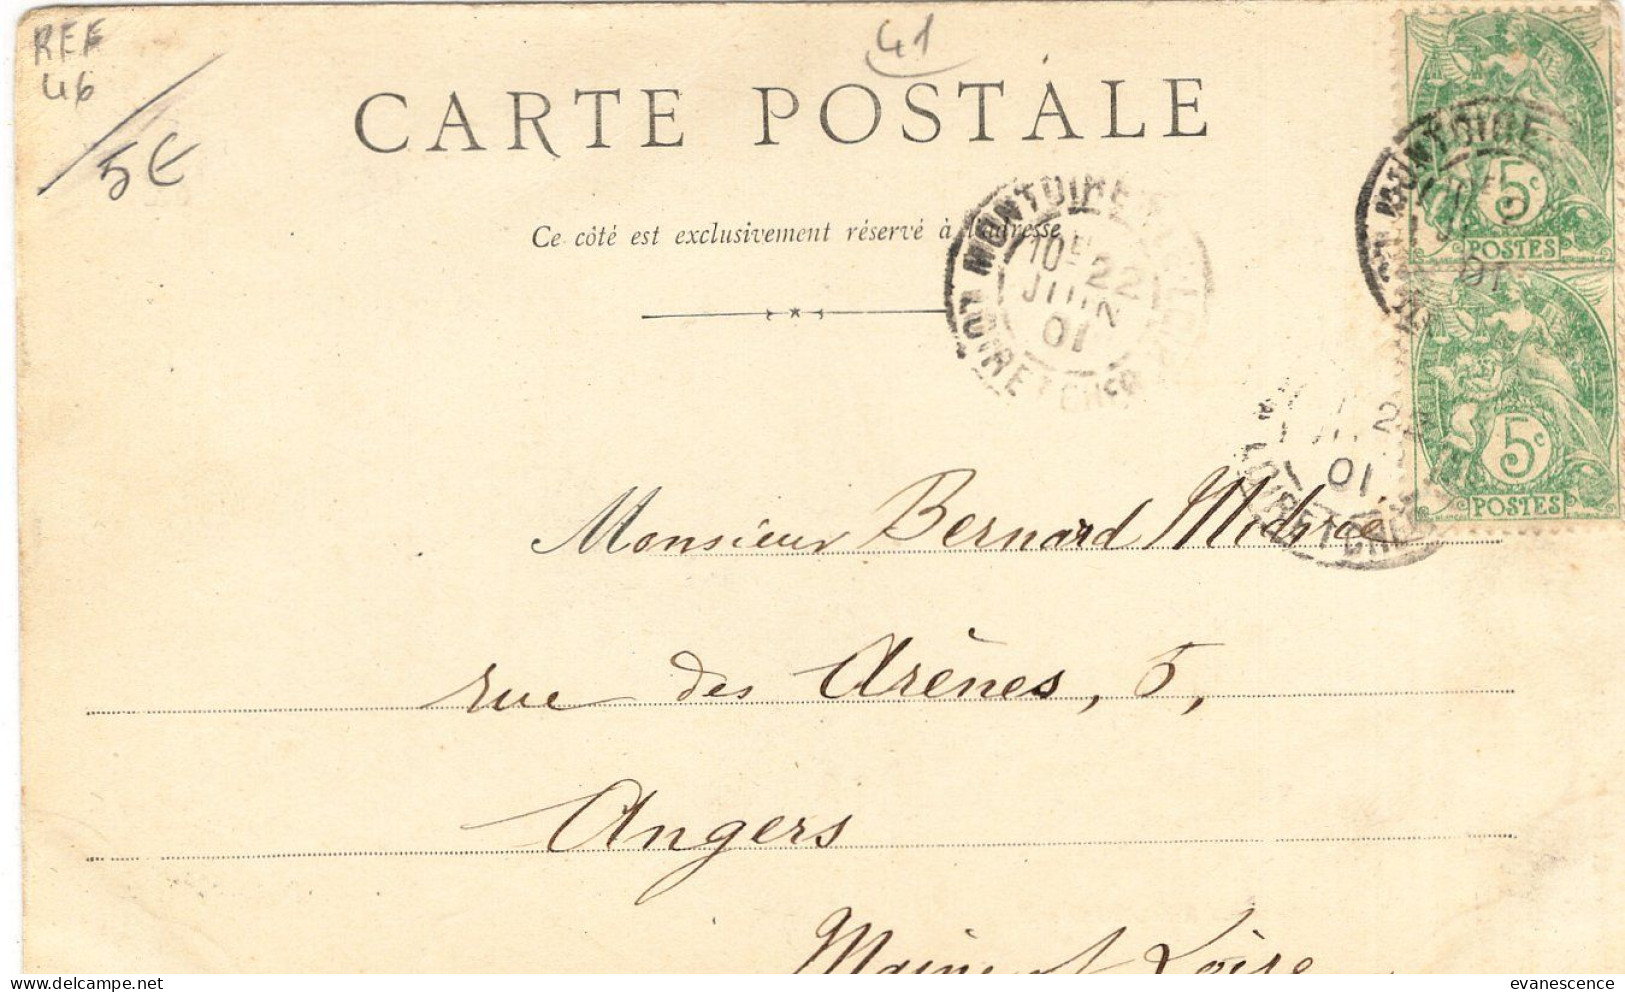 REF
46
5€
41
CARTE POSTALE
Ce côté est exclusivement réservé à l'adresse
MONTOIRE
10E 22
JUIN
01
LOIR ET CHER
5c
POSTES
MONTOIRE
01
5c
POSTES
01
LOIR ET CHER
Monsieur Bernard
rue des Arènes, 5,
Angers
Maine et Loire
evanescence